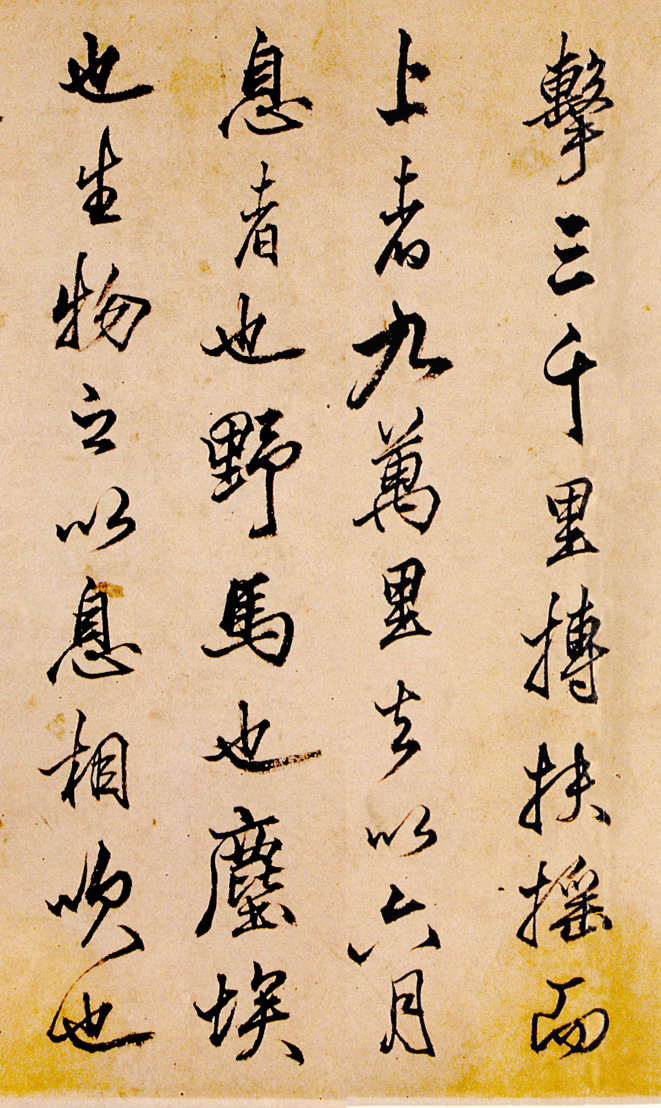 擊三千里搏扶摇而
上者九萬里去以六月
息者也野馬也塵埃
也生物之以息相吹也